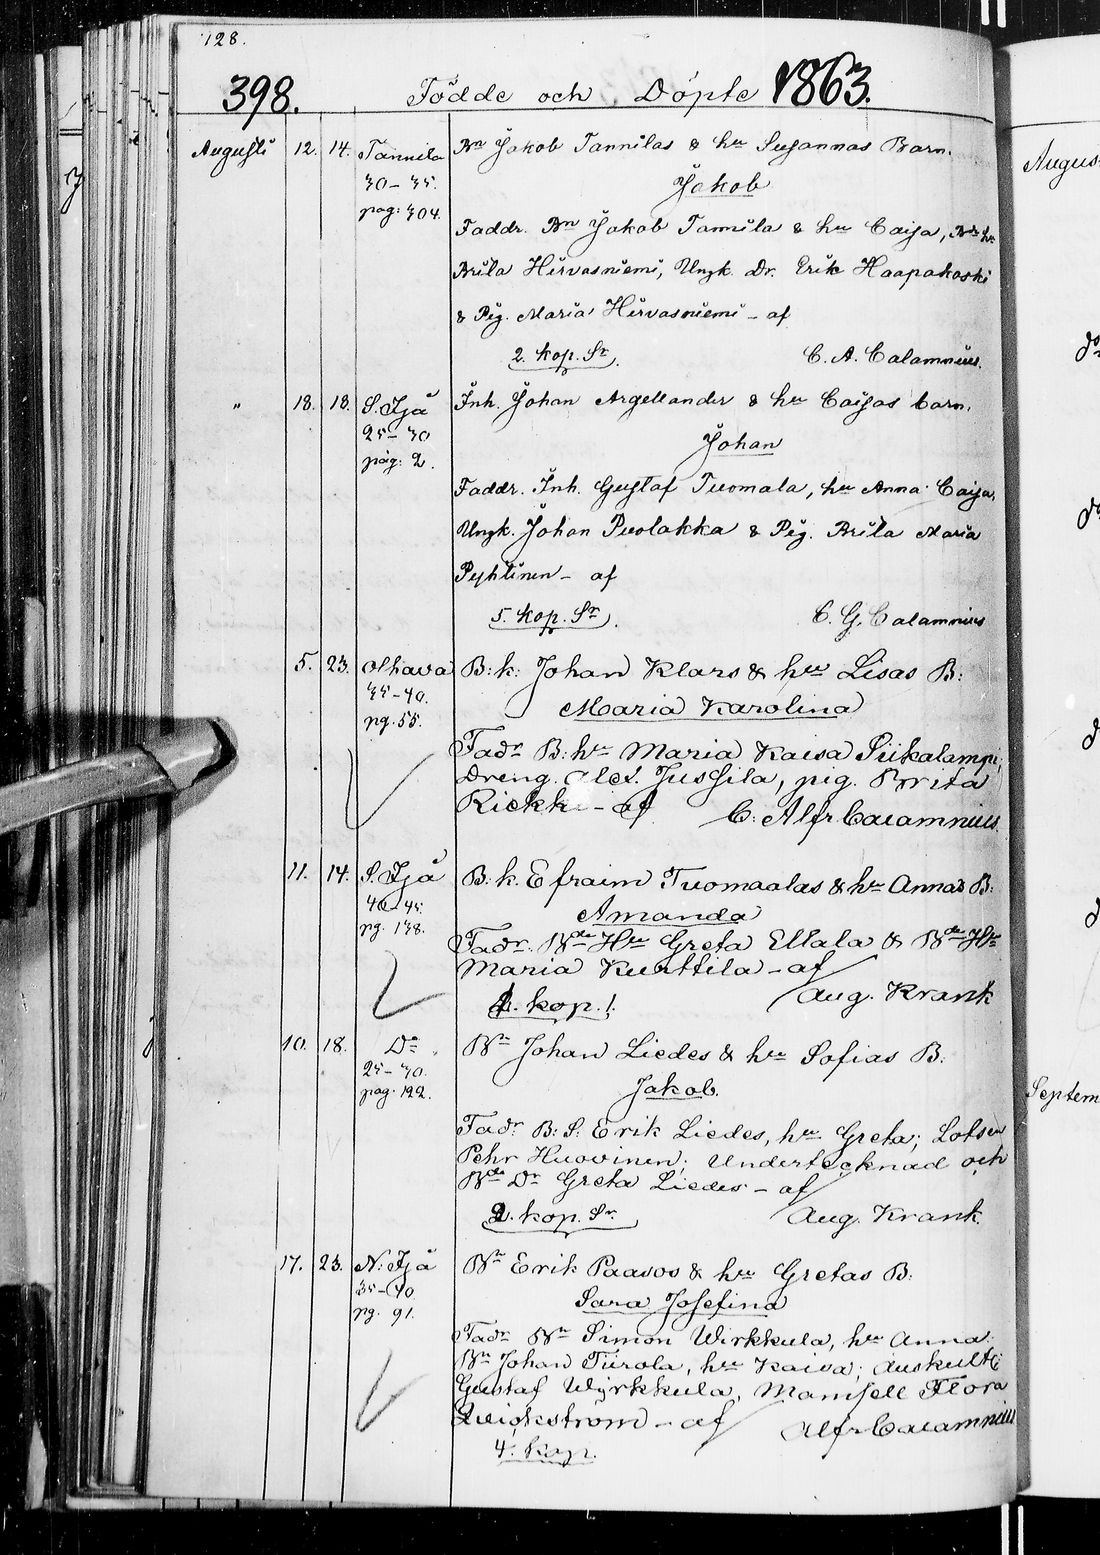 128.
398. Födde och Döpte 1863.
Augusti 12. 14. Tannila Bn Jakob Tannilas & hu Susannas Barn.
30-35. Jakob
pag: 304.
Faddr. Bn Jakob Tannila & hu Caisa, Bde hu
Brita Hirvasniemi, Ungk. Dr. Erik Haapakoski
& Pig. Maria Hirvasniemi - af
2. kop. Sr. C. A. Calamnius.
" 18. 18. S. Ijå Inh. Johan Argellander & hu Caisas barn.
25-30 Johan
pag: 2.
Faddr. Inh. Gustaf Tuomala, hu Anna Caisa,
Ungk. Johan Puolakka & Pig. Brita Maria
Pyhtinen - af
5. kop. Sr. C. G. Calamnius
5. 23. Olhava B: k: Johan Klars & hu Lisas B:
35-40. Maria Karolina
pg. 55.
Fadr B: hu Maria Kaisa Siikalampi,
Dreng. Alex. Jussila, pig. Brita
Riekki - af C. Alfr Calamnius
11. 14. S. Ijå B. k. Efraim Tuomaalas & hu Annas B:
40-45. Amanda
pg. 138.
Fadr. Bde Hu Greta Ellala & Bde Hu
Maria Kurttila - af
kop. 1. Aug. Krank
10. 18. Do Bn Johan Liedes & hu Sofias B:
25-30. Jakob.
pag. 122.
Fadr B: S: Erik Liedes, hu Greta; Lotsen
Pehr Huovinen; Undertecknad och
Bde Dr Greta Liedes - af
2. kop. Sr. Aug. Krank.
17. 23. N. Ijå Bn Erik Paasos & hu Gretas B:
35-40. Sara Josefina
pg. 91.
Fadr Bn Simon Wirkkula, hu Anna
Bn Johan Tiirola, hu Kaisa; Auskult:
Gustaf Wirkkula, Mamsell Flora
Qvickström - af Alfr Calamnius
4. kop.
Augus
Septem